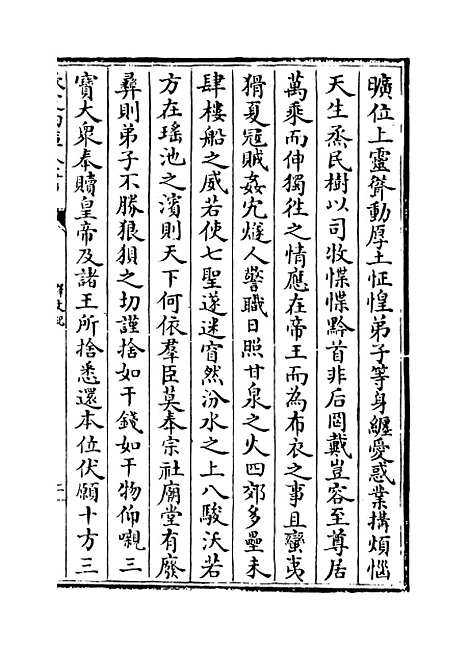 曠位上靈聳動厚土怔惶弟子等身纏愛惑業搆煩惱
天生烝民樹以司收惵惵黔首非后罔戴豈容至尊居
萬乘而伸獨徃之情應在帝王而為布衣之事且蠻夷
猾夏冠賊姦宄燧人警職日照甘泉之火四郊多壘未
肆樓船之威若使七聖遂迷窅然汾水之上八駿沃若
方在瑤池之濵則天下何依羣臣莫奉宗社廟堂有廢
彛則弟子不勝狼狽之切謹捨如干錢如干物仰嚫三
寶大衆奉贖皇帝及諸王所捨悉還本位伏願十方三
釋文紀